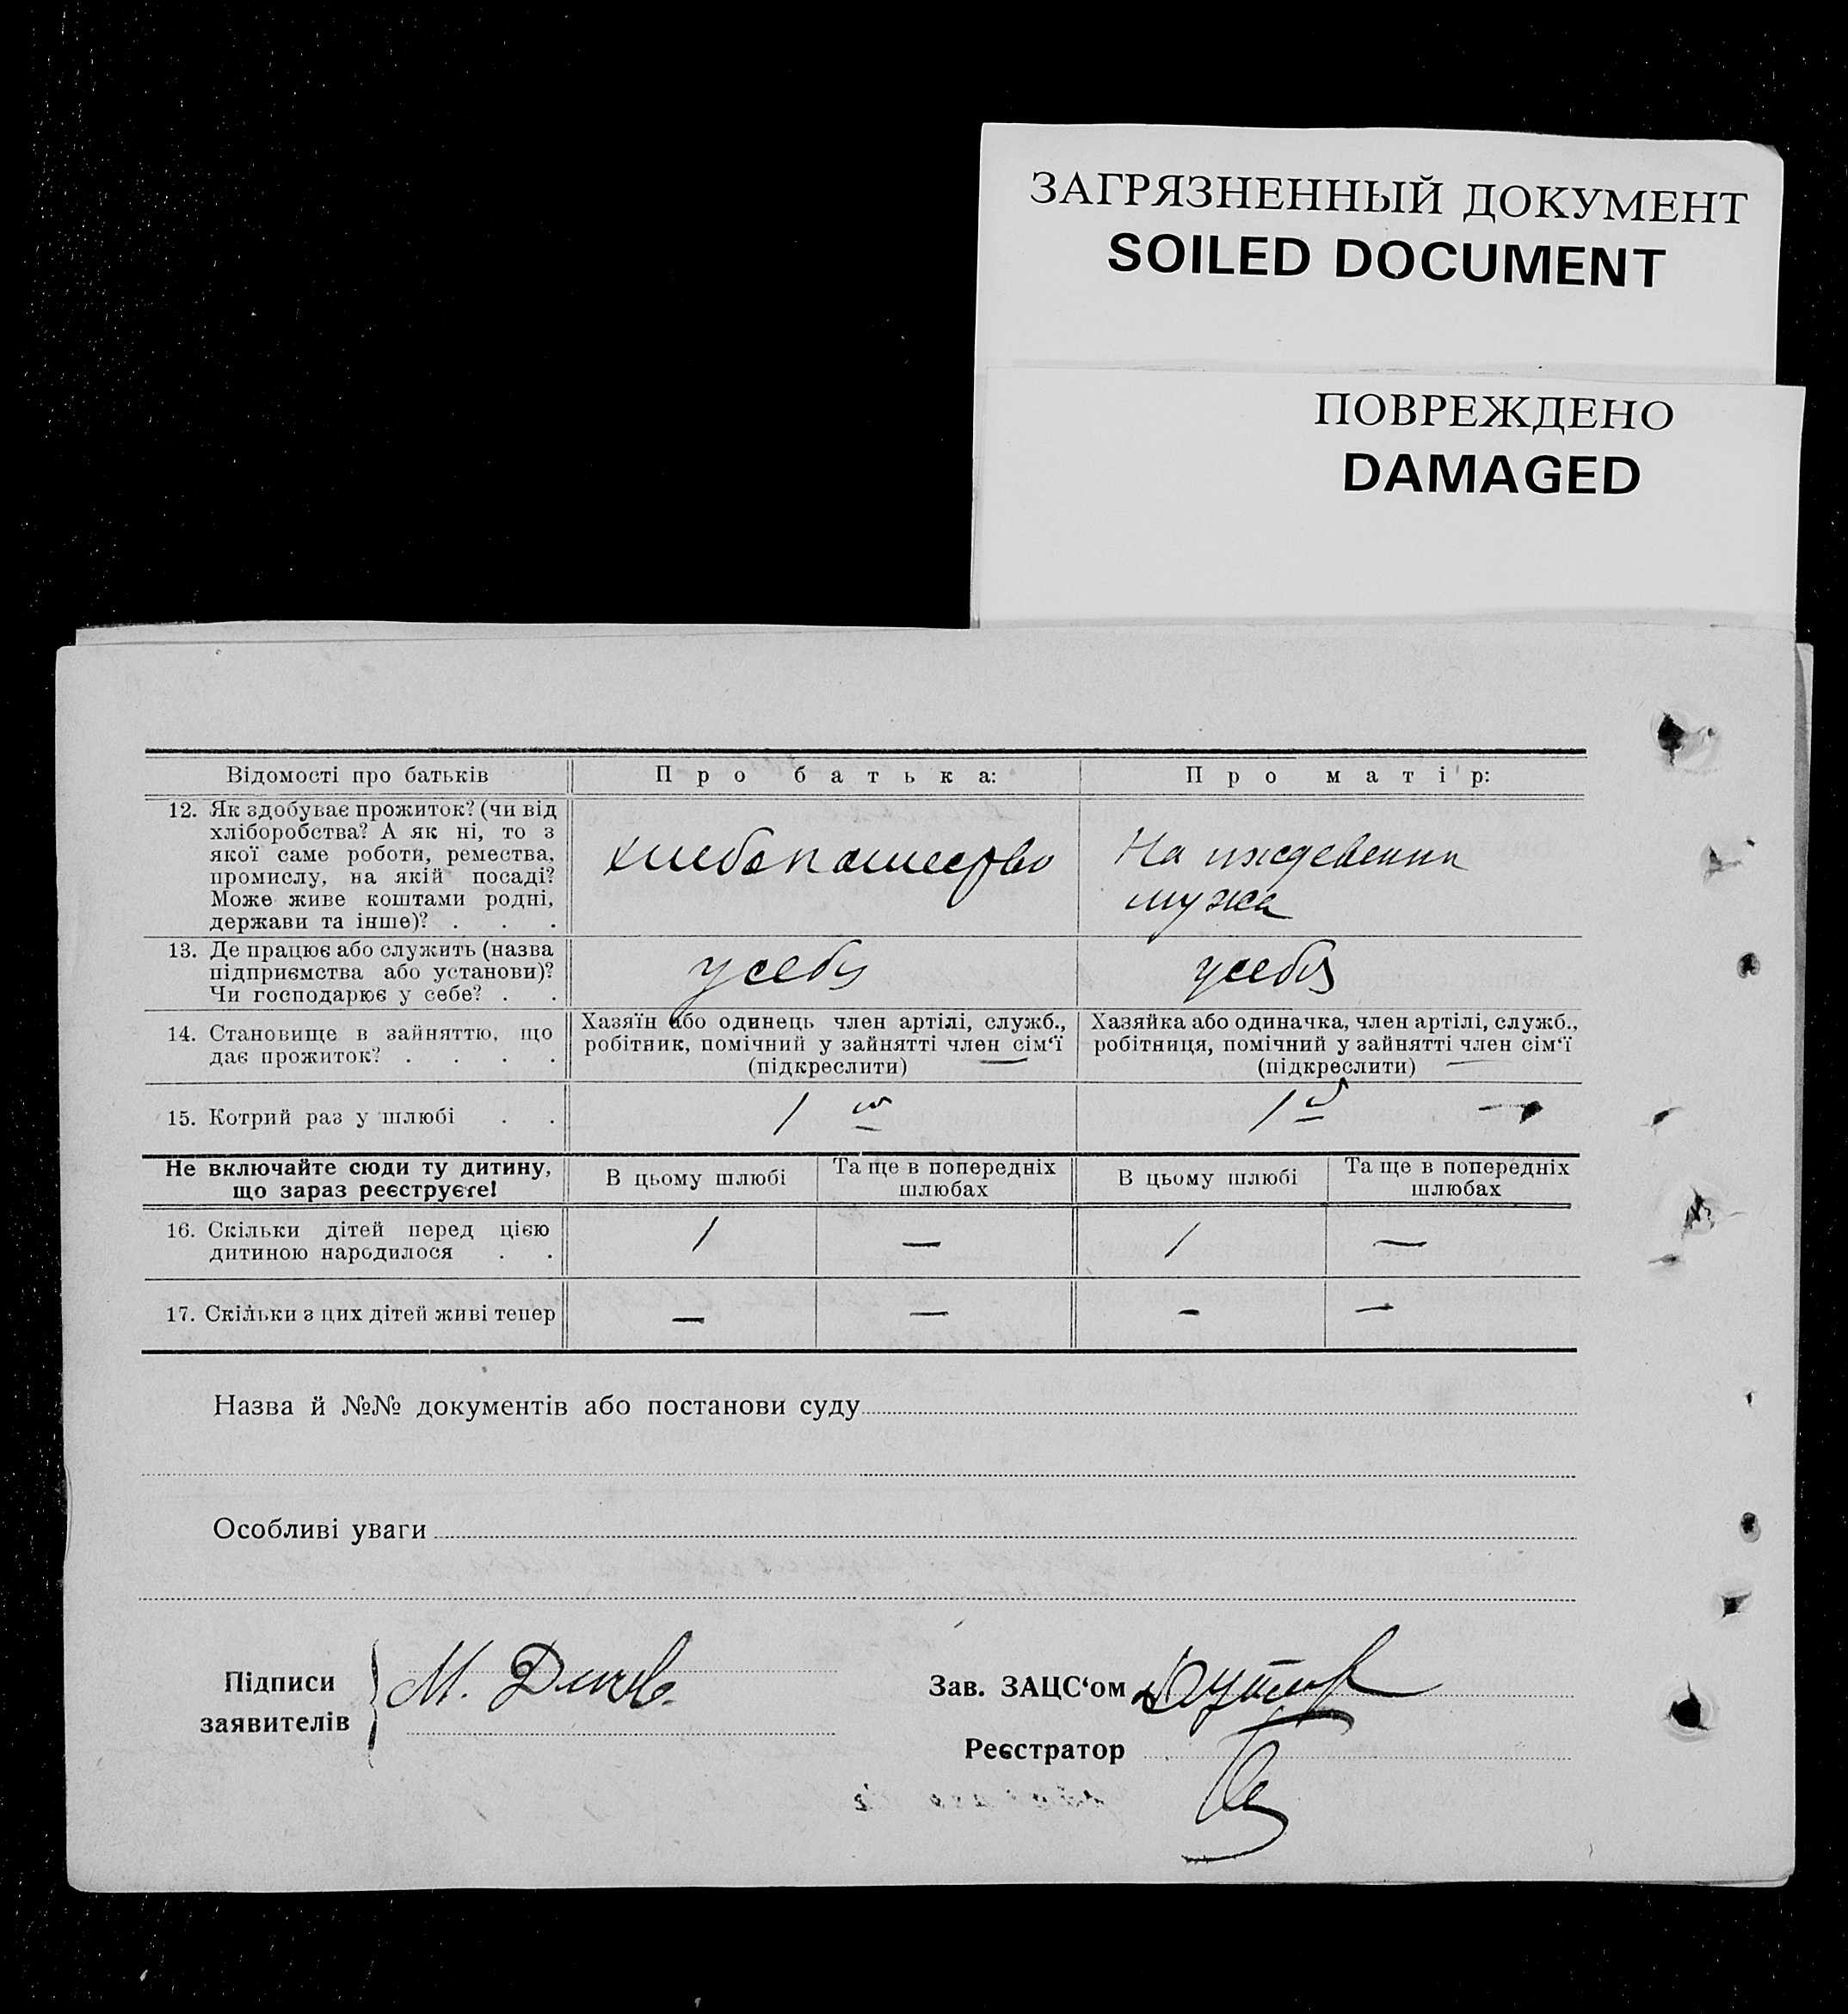 ЗАГРЯЗНЕННЫЙ ДОКУМЕНТ
SOILED DOCUMENT
ПОВРЕЖДЕНО
DAMAGED
Відомості про батьків
Про батька:
Про матір:
12. Як здобуває прожиток? (чи від
хліборобства? А як ні, то з
якої саме роботи, ремества,
промислу, на якій посаді?
Може живе коштами родні,
держави та інше)? . . .
хлебопашество
На иждевении
мужа
13. Де працює або служить (назва
підприємства або установи)?
Чи господарює у себе? . .
у себя
у себя
14. Становище в зайняттю, що
дає прожиток? . . . .
Хазяїн або одинець член артілі, служб.,
робітник, помічний у зайнятті член сім‘ї
(підкреслити)
Хазяйка або одиначка, член артілі, служб.,
робітниця, помічний у зайнятті член сім‘ї
(підкреслити)
15. Котрий раз у шлюбі . .
1
1
Не включайте сюди ту дитину,
що зараз реєструєте!
В цьому шлюбі
Та ще в попередніх
шлюбах
В цьому шлюбі
Та ще в попередніх
шлюбах
16. Скільки дітей перед цією
дитиною народилося . .
1
—
1
—
17. Скільки з цих дітей живі тепер
—
—
—
—
Назва й №№ документів або постанови суду
Особливі уваги
Підписи
заявителів
М.
Зав. ЗАЦС‘ом
Реєстратор